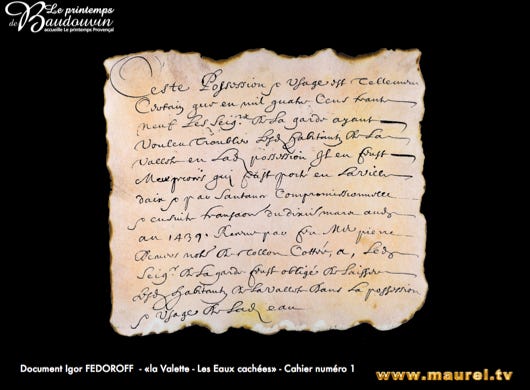 Le printemps
de Baudouvin
accueille Le printemps Provençal
Ceste Possession & Usage est Tellement
Certain que en mil quatre Cens trante
neuf Les Seigrs De La garde ayant
Voulleu Troubler Lesd habitants De La
Vallete en Lad possession Il en feust
qui feust porté en
par Santance Compromissionnelle
& ensuite
au 1439. par pierre
notre De Tollon Cotté, a, Lesd
Seigrs De La garde feust obligé De Laisser
Lesd habitants De La Vallete Dans La possession
& Usage De Lad eau
Document Igor FEDOROFF - «la Valette - Les Eaux cachées» - Cahier numéro 1
www.maurel.tv